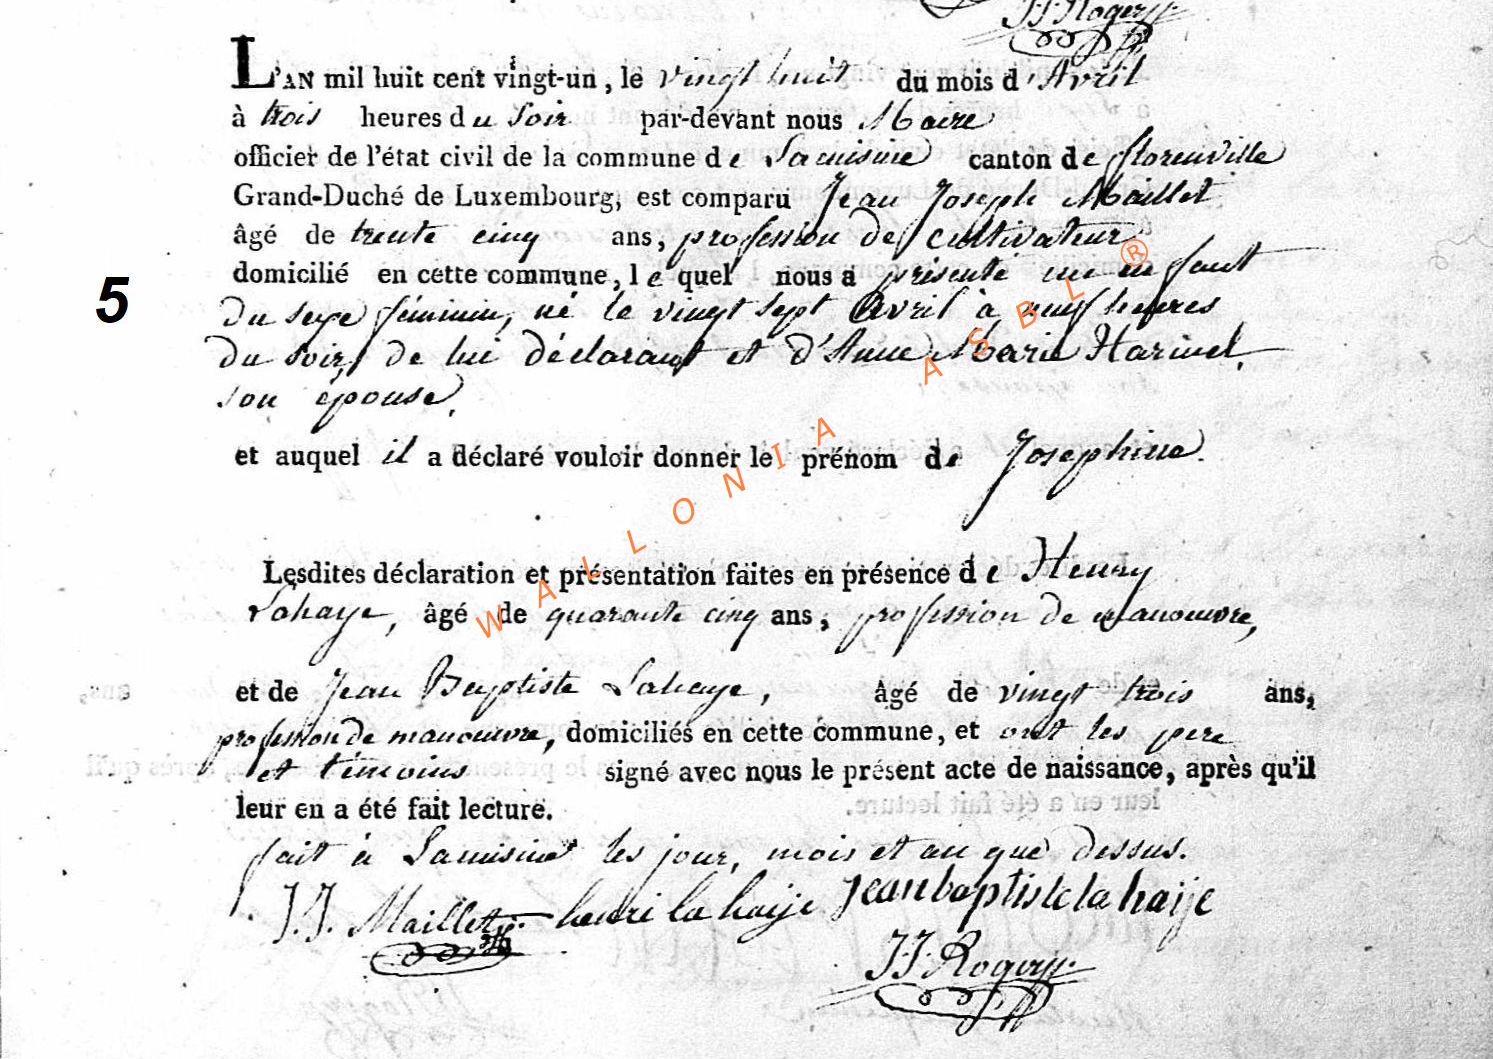 J. J. Rogery
L'AN mil huit cent vingt-un, le vingt huit du mois d'Avril
à trois heures du Soir par-devant nous Maire
officier de l'état civil de la commune de Lacuisine canton de florenville
Grand-Duché de Luxembourg, est comparu Jean Joseph Maillet
âgé de trente cinq ans, profession de cultivateur
domicilié en cette commune, lequel nous a présenté un enfant
5
du sexe féminin, né le vingt sept Avril à neuf heures
du soir, de lui déclarant et d'Anne Marie Harinel,
son épouse,
et auquel il a déclaré vouloir donner le prénom de Josephine.
WALLONIA ASBL ®
Lesdites déclaration et présentation faites en présence de Henry
Lahaye, âgé de quarante cinq ans, profession de manouvre,
et de Jean Baptiste Lahaye, âgé de vingt trois ans,
profession de manouvre, domiciliés en cette commune, et ont les pere
et témoins signé avec nous le présent acte de naissance, après qu'il
leur en a été fait lecture.
fait à Lacuisine les jour, mois et an que dessus.
J. J. Maillet henri la haije jean baptiste la haije
J. J. Rogery